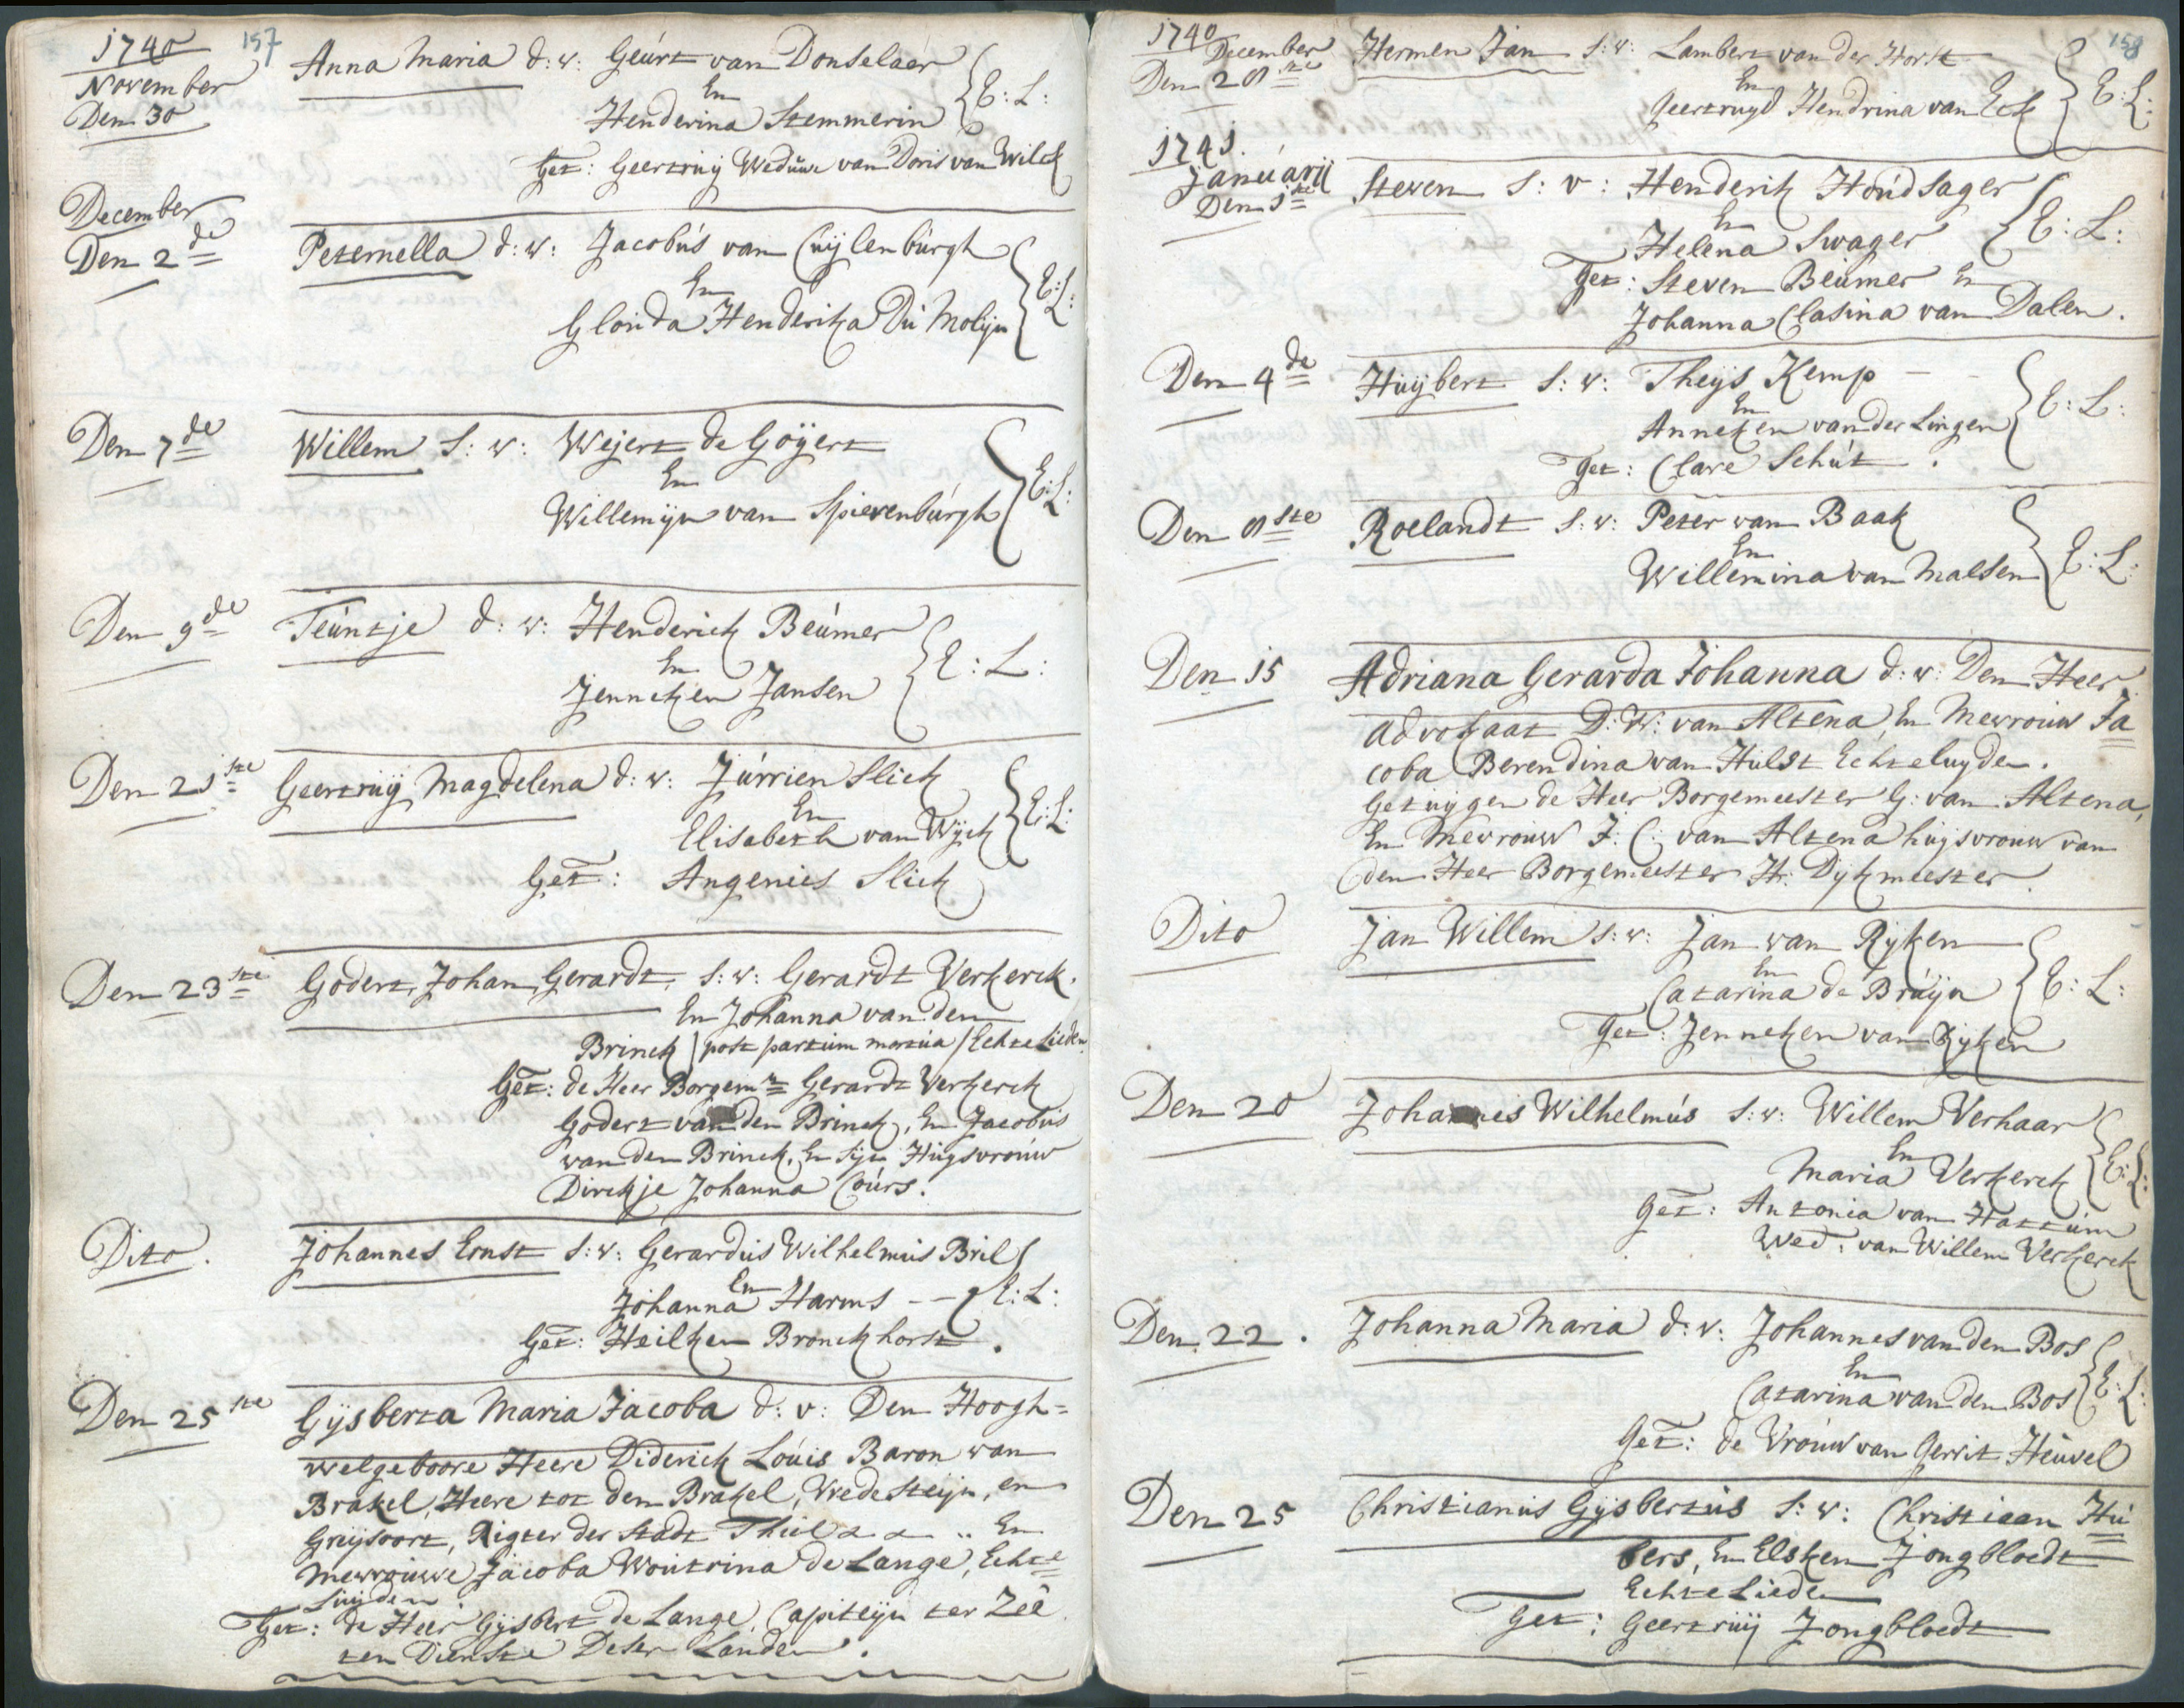 1740
157
November
Den 30
Anna Maria d: v: Geúrt van Donselaer
En
Henderina Stemmerin
E: L:
Get: Geertruij Weduwe van Doris van Wilck
December
Den 2de
Peternella d: v: Jacobús van Cuijlenbúrgh
En
Glorida Henderika Du Molijn
E: L:
Den 7de
Willem S: v: Weijert de Goijert
En
Willemijn van Spierenbúrgh
E: L:
Den 9de
Teúntje d: v: Henderick Beúmer
En
Jenneken Jansen
E: L:
Den 21ste
Geertruij Magdelena d: v: Júrrien Slick
En
Elisabeth van Wijck
E: L:
Get: Angenies Slick
Den 23ste
Godert, Johan, Gerardt, S: v: Gerardt Verkerck.
En Johanna van den
Brinck / post partum mortúa / Echte Lieden
Get: de Heer Borgemr Gerardt Verkerck
Godert van den Brinck, En Jacobus
van den Brinck, En Sijn Huijsvroúw
Dirckje Johanna Coúrs.
Dito.
Johannes Ernst S: v: Gerardus Wilhelmus Bril
En
Johanna Harms --
E: L:
Get: Heilken Bronckhorst.
Den 25ste
Gijsberta Maria Jacoba d: v: Den Hoogh=
welgeboore Heere Diderick Loúis Baron van
Brakel, Heere tot den Brakel, Vredesteijn, en
Greijsoort, Rigter der Stadt Thiel En
Mevrouwe Jacoba Woutrina de Lange, Echte=
Luijden
Get: de Heer Gijsbert de Lange, Capiteijn ter Zeê
ten Dienste Deser Landen.
1740
158
December
Den 28ste
Hermen Jan S: v: Lambert van der Horst
En
Geertruyd Hendrina van Eck
E: L:
1741.
Janúarij
Den 1ste
Steven S: v: Henderik Hoúdsager
En
Helena Swager
E: L:
Get: Steven Beúmer En
Johanna Clasina van Dalen.
Den 4de
Huijbert S: v: Theijs Kemp
En
Anneken van der Lingen
E: L:
Get: Clare Schút.
Den 8ste
Roelandt S: v: Peter van Baak
En
Willemina van Malsen
E: L:
Den 15
Adriana Gerarda Johanna d: v: Den Heer
Advokaat D: W: van Altena, En Mevrouw Ja=
coba Berendina van Hulst Echteluyden.
Getuijgen de Heer Borgemeester G: van Altena,
En Mevrouw J: C: van Altena huijsvrouw van
den Heer Borgemeester Hr: Dijkmeester.
Dito
Jan Willem S: v: Jan van Rijken
En
Catarina de Bruijn
E: L:
Get: Jenneken van Rijken
Den 20
Johannes Wilhelmús S: v: Willem Verhaar
En
Maria Verkerck
E: L:
Get: Antonia van Hattúm
Wed: van Willem Verkerck
Den 22.
Johanna Maria d: v: Johannes van den Bos
En
Catarina van den Bos
E: L:
Get: de Vrouw van Gerrit Heuvel
Den 25
Christianus Gijsbertús S: v: Christiaan Hu=
bers, En Elsken Jongbloedt
Echte Lieden
Get: Geertruij Jongbloedt